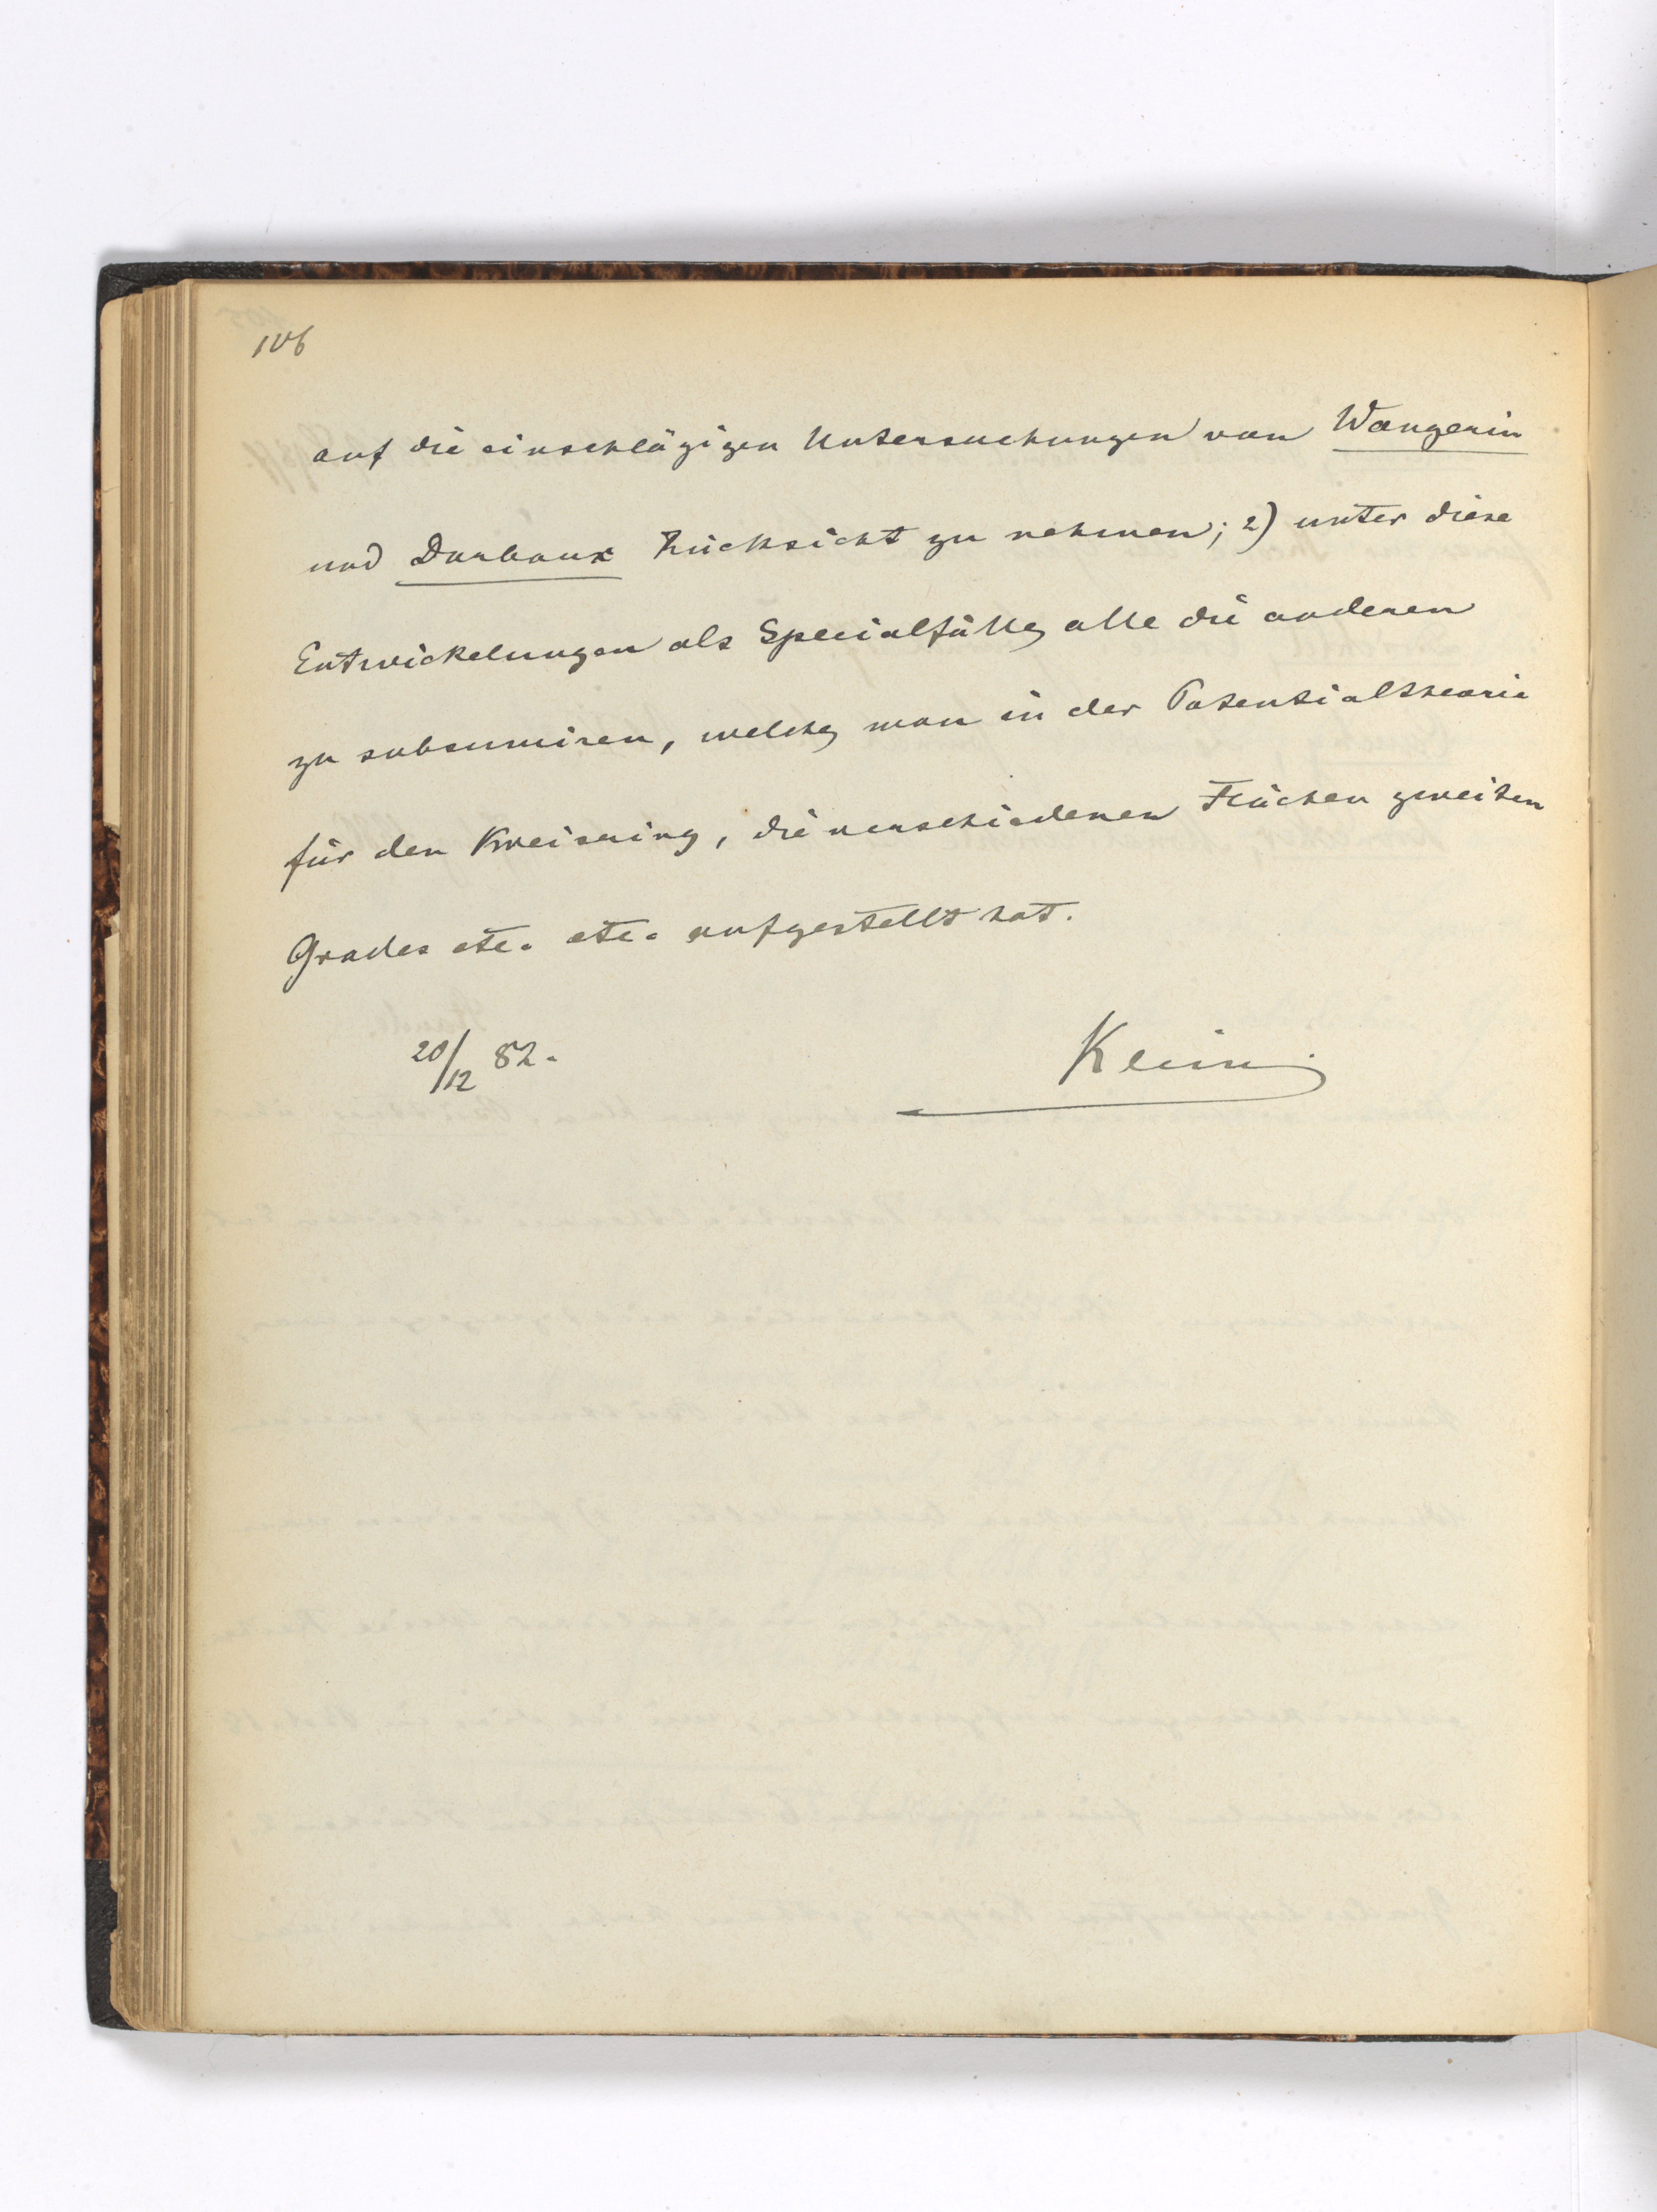 106
auf die einschlägigen Untersuchungen von Wangerin
und Darboux Rücksicht zu nehmen; 2) unter diese
Entwickelungen als Specialfälle alle die anderen
zu subsumiren, welche man in der Potentialtheorie
für den Kreisring, die verschiedenen Flächen zweiten
Grades etc. etc. aufgestellt hat.
20/12 82.
Klein.